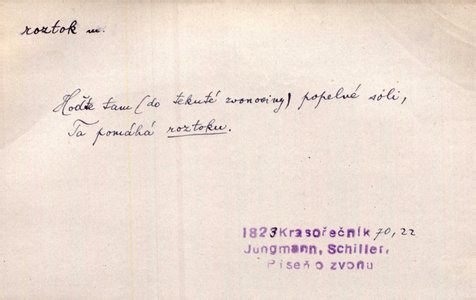 roztok m.
Hoďte tam (do tekuté zvonoviny) popelné sóli,
Ta pomáhá roztoku.
1823 Krasořečník 70,22
Jungmann, Schiller,
Píseň o zvonu